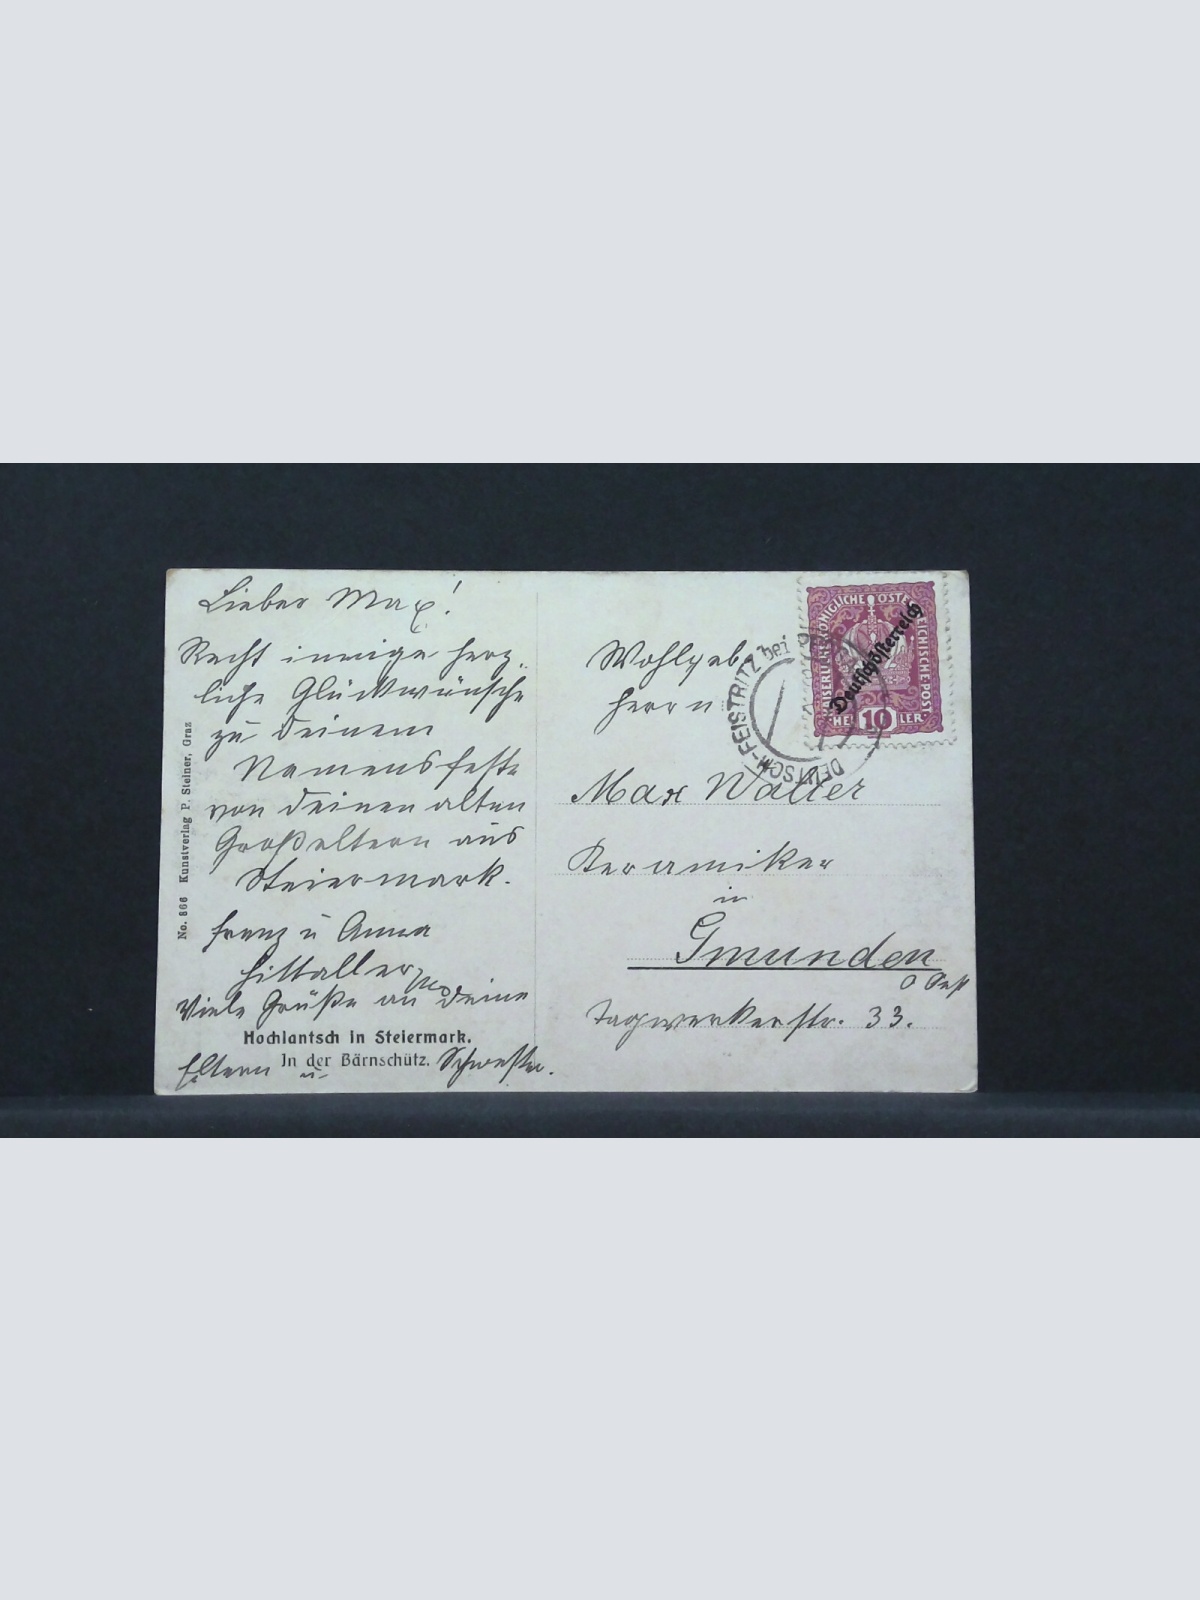 Lieber Max!
Recht innige herz-
liche Glückwünsche
zu Deinem
Namensfeste
von Deinen alten
Großeltern aus
Steiermark.
Franz u Anna
Viele Grüße an Deine
Eltern u. Schwester.
Hochlantsch in Steiermark.
In der Bärnschütz.
No. 866 Kunstverlag P. Steiner, Graz
Wohlgeb.
Herrn
Max Walter
Keramiker
in
Gmunden
O Öest
Tagwerkerstr. 33.
KAISERLICHE KÖNIGLICHE ÖSTERREICHISCHE POST
Deutschösterreich
10
HELLER
DEUTSCH-FEISTRITZ bei